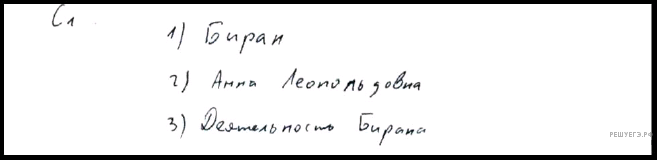 С1
1) Биран
2) Анна Леопольдовна
3) Деятельность Бирана
РЕШУЕГЭ.РФ